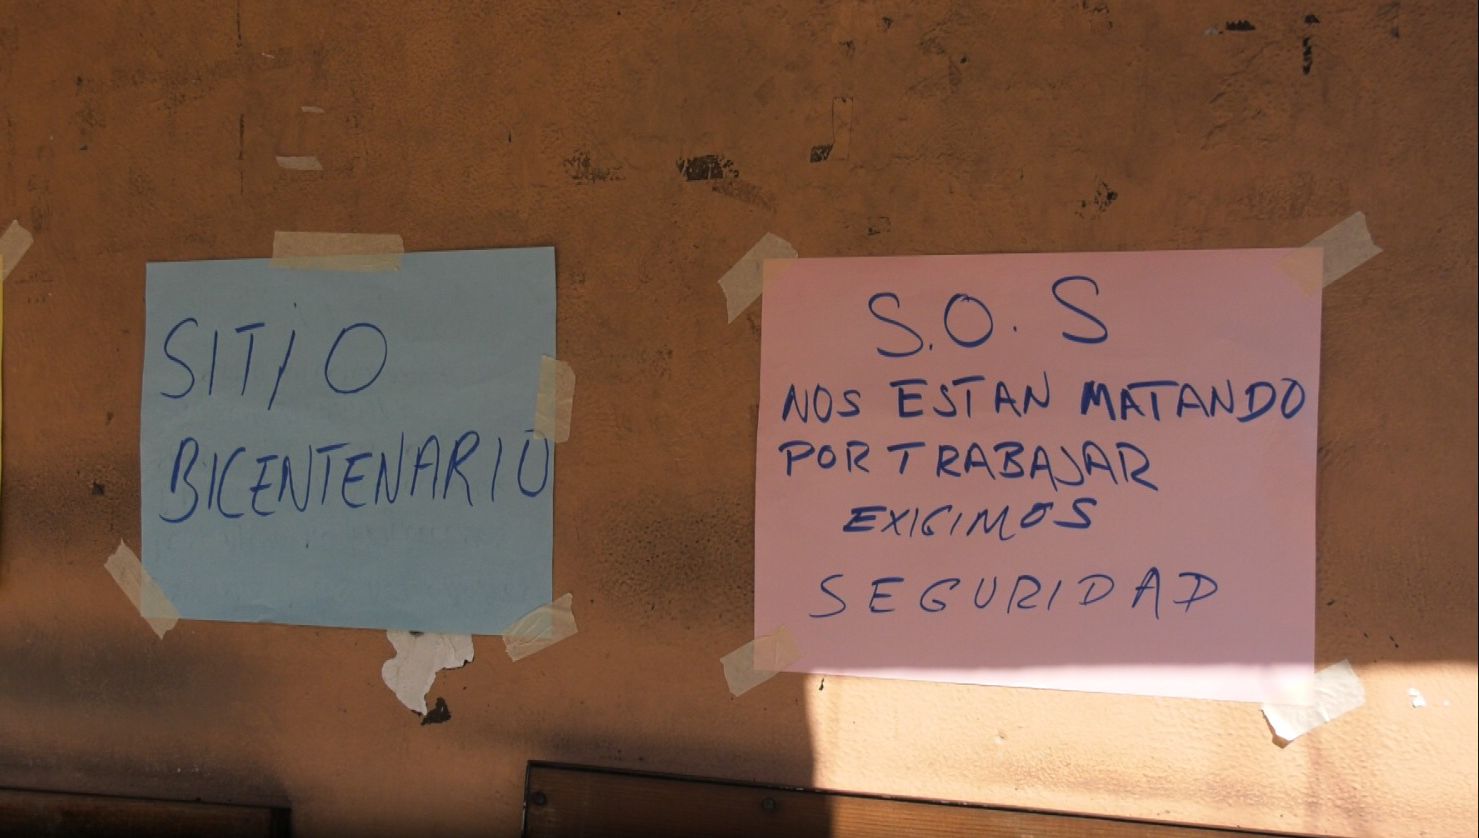 SITIO
BICENTENARIO
S.O.S
NOS ESTAN MATANDO
POR TRABAJAR
EXIGIMOS
SEGURIDAD